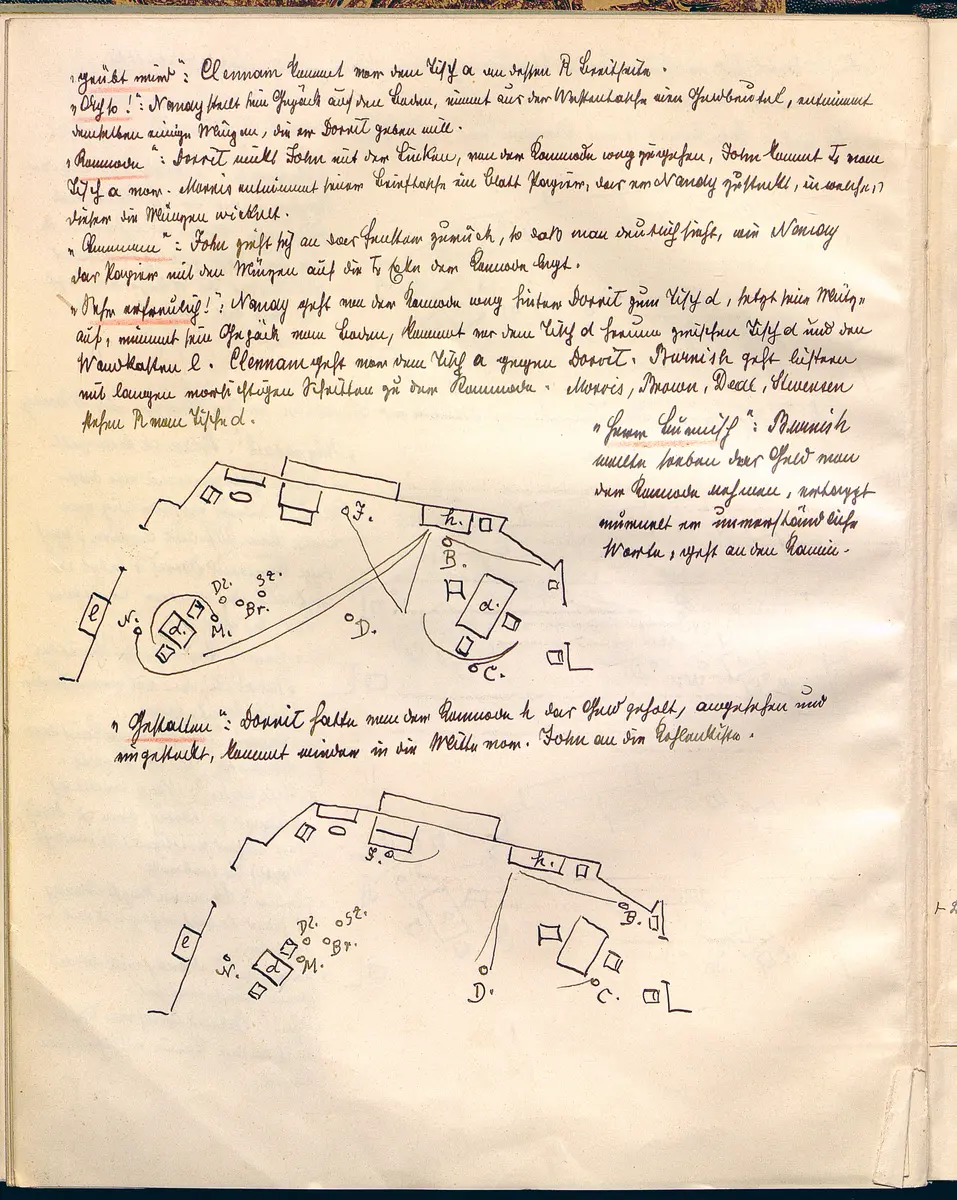 „geübt wird“: Clennam kommt vor dem Tisch a an dessen R Breitseite.
!“: Nandy stellt sein Gepäck auf den Boden, nimmt aus der Westentasche einen Geldbeutel, entnimmt
demselben einige Münzen, die er Dorrit geben will.
„Kommode“: Dorrit winkt John mit der Linken, von der Kommode wegzugehen, John kommt Ls vom
Tisch a vor. Morris entnimmt seiner Brieftasche ein Blatt Papier, das er Nandy zusteckt, in welches
dieser die Münzen wickelt.
“: John zieht sich an das Fenster zurück, so daß man deutlich sieht, wie Nandy
das Papier mit den Münzen auf die Ls Ecke der Kommode legt.
„Sehr erfreulich!“: Nandy geht von der Kommode weg hinter Dorrit zum Tisch d, setzt seine Mütze
auf, nimmt sein Gepäck vom Boden, kommt vor dem Tisch d herum zwischen Tisch d und den
Wandkasten l. Clennam geht vor dem Tisch a gegen Dorrit. Burnish geht lüstern
mit langen vorsichtigen Schritten zu der Kommode. Morris, Brown, Deal, Stevensen
stehen R vom Tische d.
„Herr Burnisch“: Burnish
wollte soeben das Geld von
der Kommode nehmen, ertappt
murmelt er unverständliche
Worte, geht an den Kamin.
J.
h.
B.
Dl. St.
l
N.
Br.
a.
d.
M.
D.
C.
„Gestatten“: Dorrit hatte von der Kommode h das Geld geholt, angesehen und
eingesteckt, kommt wieder in die Mitte vor. John an die Kohlenkiste.
J.
h.
B.
Dl. St.
l
Br.
N.
d
M.
D.
C.